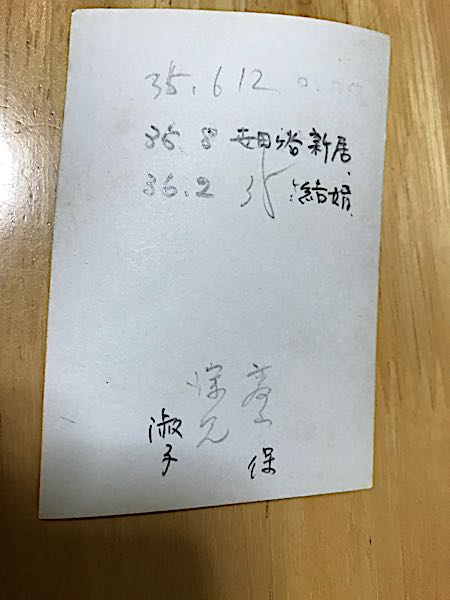 35.6 12
35.8 世田ヶ谷新居
36.2 35 結婚
淑子 保